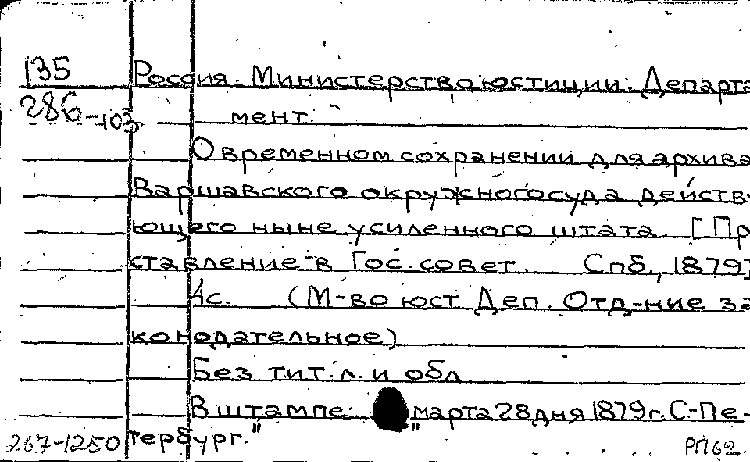 135 Россия. Министерство юстиции. Департа
286-103 мент.
О временном сохранении для архива
Варшавского окружного суда действ-
ющего ныне усиленного штата. [Пр
ставление в Гос. совет. Спб., 1879]
4с. (М-во юст Деп. Отд-ние за
конодательное)
Без тит. л. и обл
В штампе: "марта 28 дня 1879 г. С-Пе-
267-1250 тербург." РП62